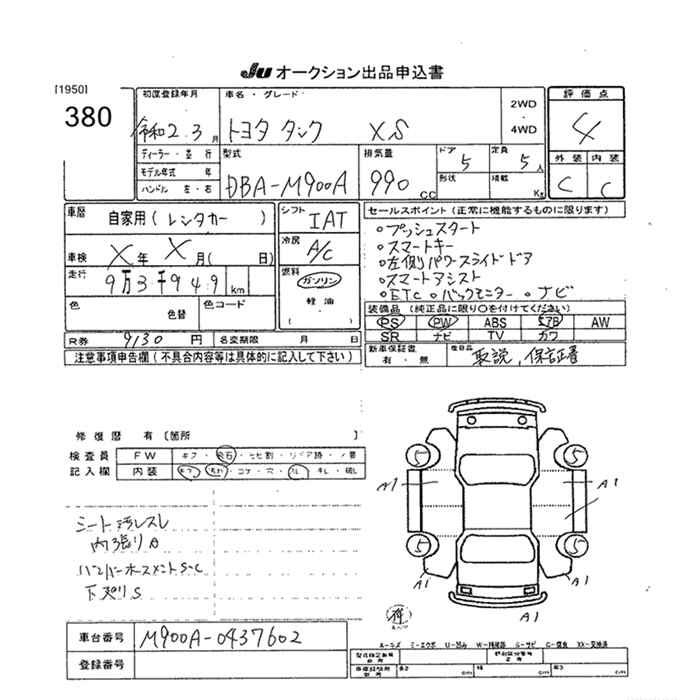 JU オークション出品申込書
[1950]
380
初度登録年月 令和2.3月
車名・グレード トヨタ タンク XS
2WD・4WD
評価点 4
外装 C 内装 C
ディーラー・並行
モデル年式 年
ハンドル 左・右
型式 DBA-M900A
排気量 990 CC
ドア 5
定員 5人
形状
積載 Kg
車歴 自家用(レンタカー)
シフト IAT
車検 X年 X月( 日)
冷房 A/C
走行 9万3千949km
燃料 ガソリン 軽油 ( )
色 色替 色コード
R券 9130円 名変期限 月 日
注意事項申告欄(不具合内容等は具体的に記入して下さい)
セールスポイント(正常に機能するものに限ります)
○プッシュスタート
○スマートキー
○左側パワースライドドア
○スマートアシスト
○ETC ○バックモニター ○ナビ
装備品(純正品に限り○を付けてください)
PS PW ABS エアB AW
SR ナビ TV カワ
新車保証書 有・無
取説,保証書
修復歴 有[箇所 ]
検査員 FW キズ・飛石・ヒビ割・リペア跡・ノ要
記入欄 内装 キズ・汚れ・コゲ・穴・スレ・キレ・破レ
シート汚レスレ
内張りカ
下廻りS
A1 A1
5 5
5 5
A1 A1
A1
車台番号 M900A-0437602
登録番号